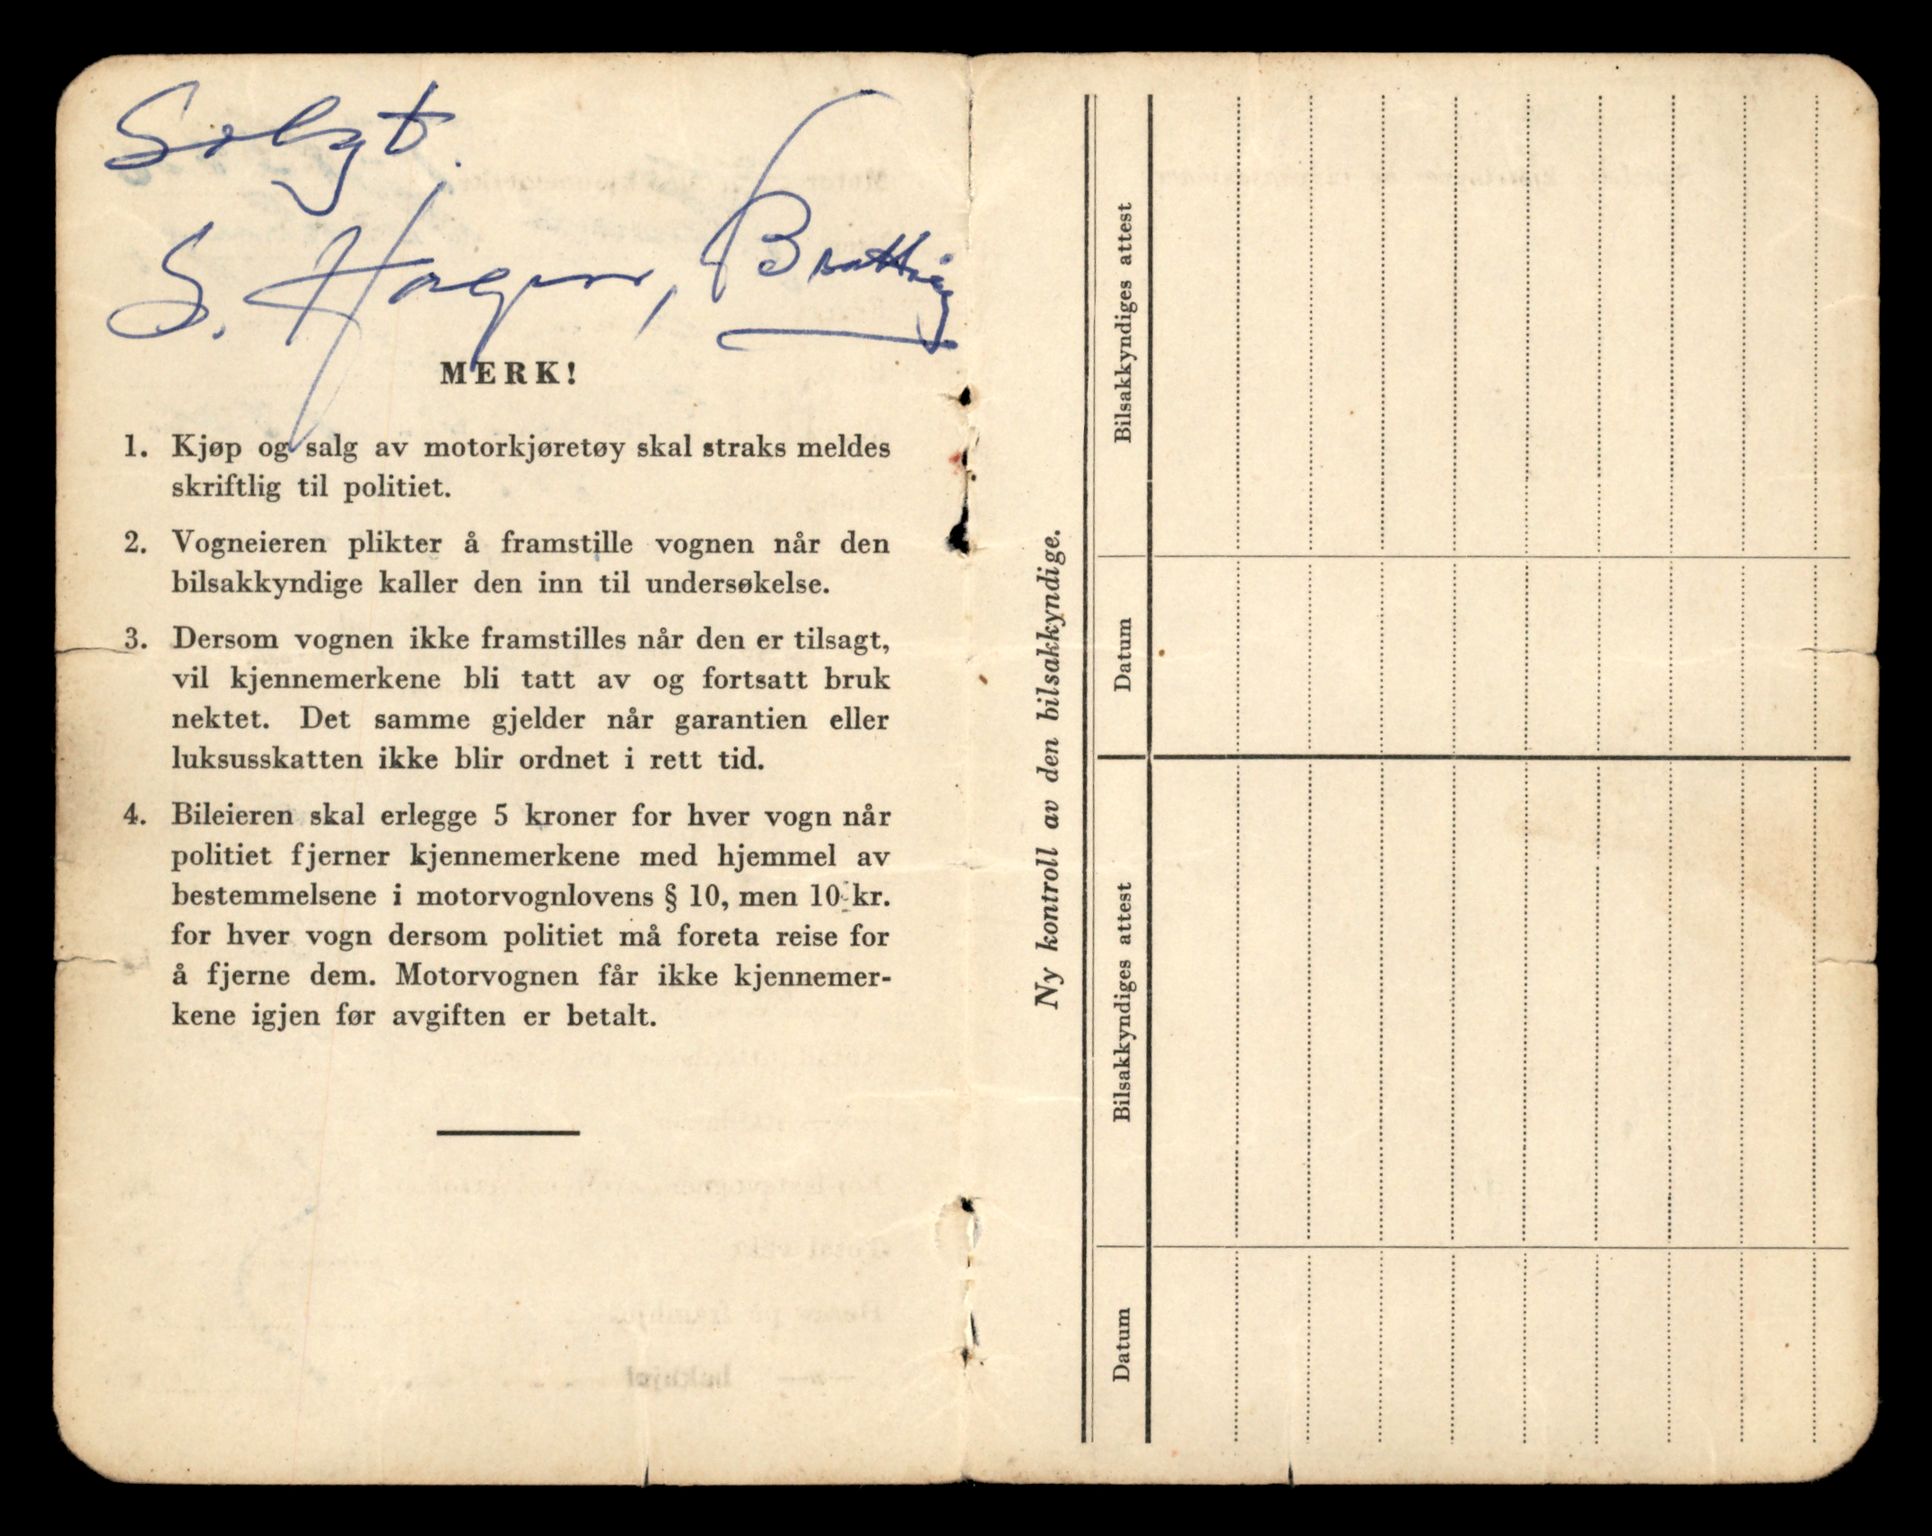 Solgt.
S. Hagen, Brattvåg
MERK!
1. Kjøp og salg av motorkjøretøy skal straks meldes
skriftlig til politiet.
2. Vogneieren plikter å framstille vognen når den
bilsakkyndige kaller den inn til undersøkelse.
3. Dersom vognen ikke framstilles når den er tilsagt,
vil kjennemerkene bli tatt av og fortsatt bruk
nektet. Det samme gjelder når garantien eller
luksusskatten ikke blir ordnet i rett tid.
4. Bileieren skal erlegge 5 kroner for hver vogn når
politiet fjerner kjennemerkene med hjemmel av
bestemmelsene i motorvognlovens § 10, men 10 kr.
for hver vogn dersom politiet må foreta reise for
å fjerne dem. Motorvognen får ikke kjennemer-
kene igjen før avgiften er betalt.
Ny kontroll av den bilsakkyndige.
Datum
Bilsakkyndiges attest
Datum
Bilsakkyndiges attest